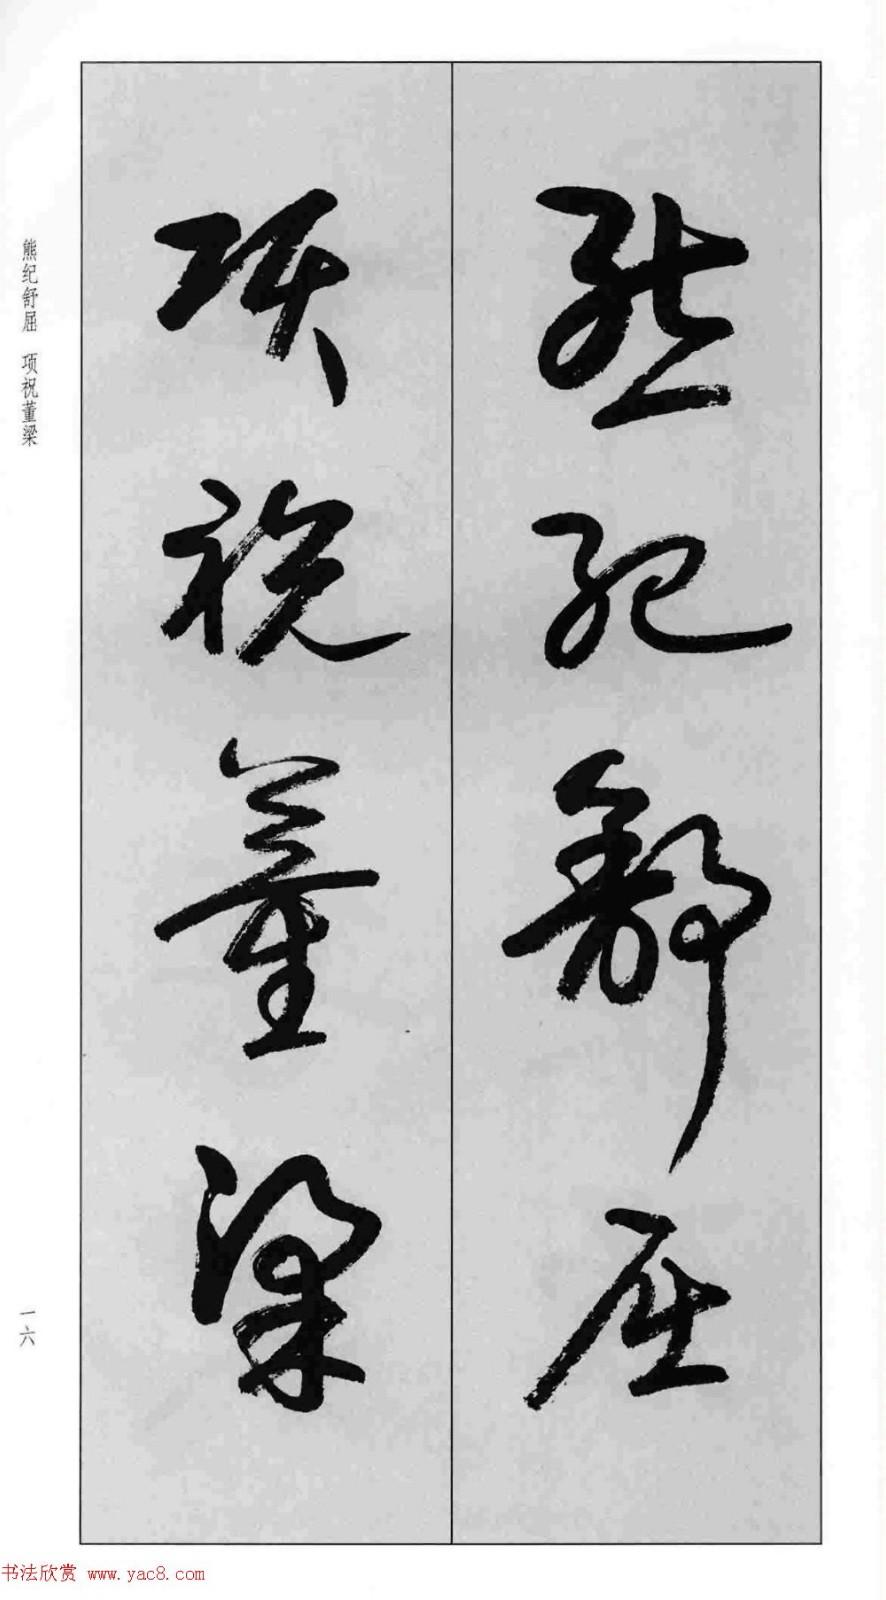 熊纪舒屈
项祝董梁
熊纪舒屈 项祝董梁
一六
书法欣赏 www.yac8.com